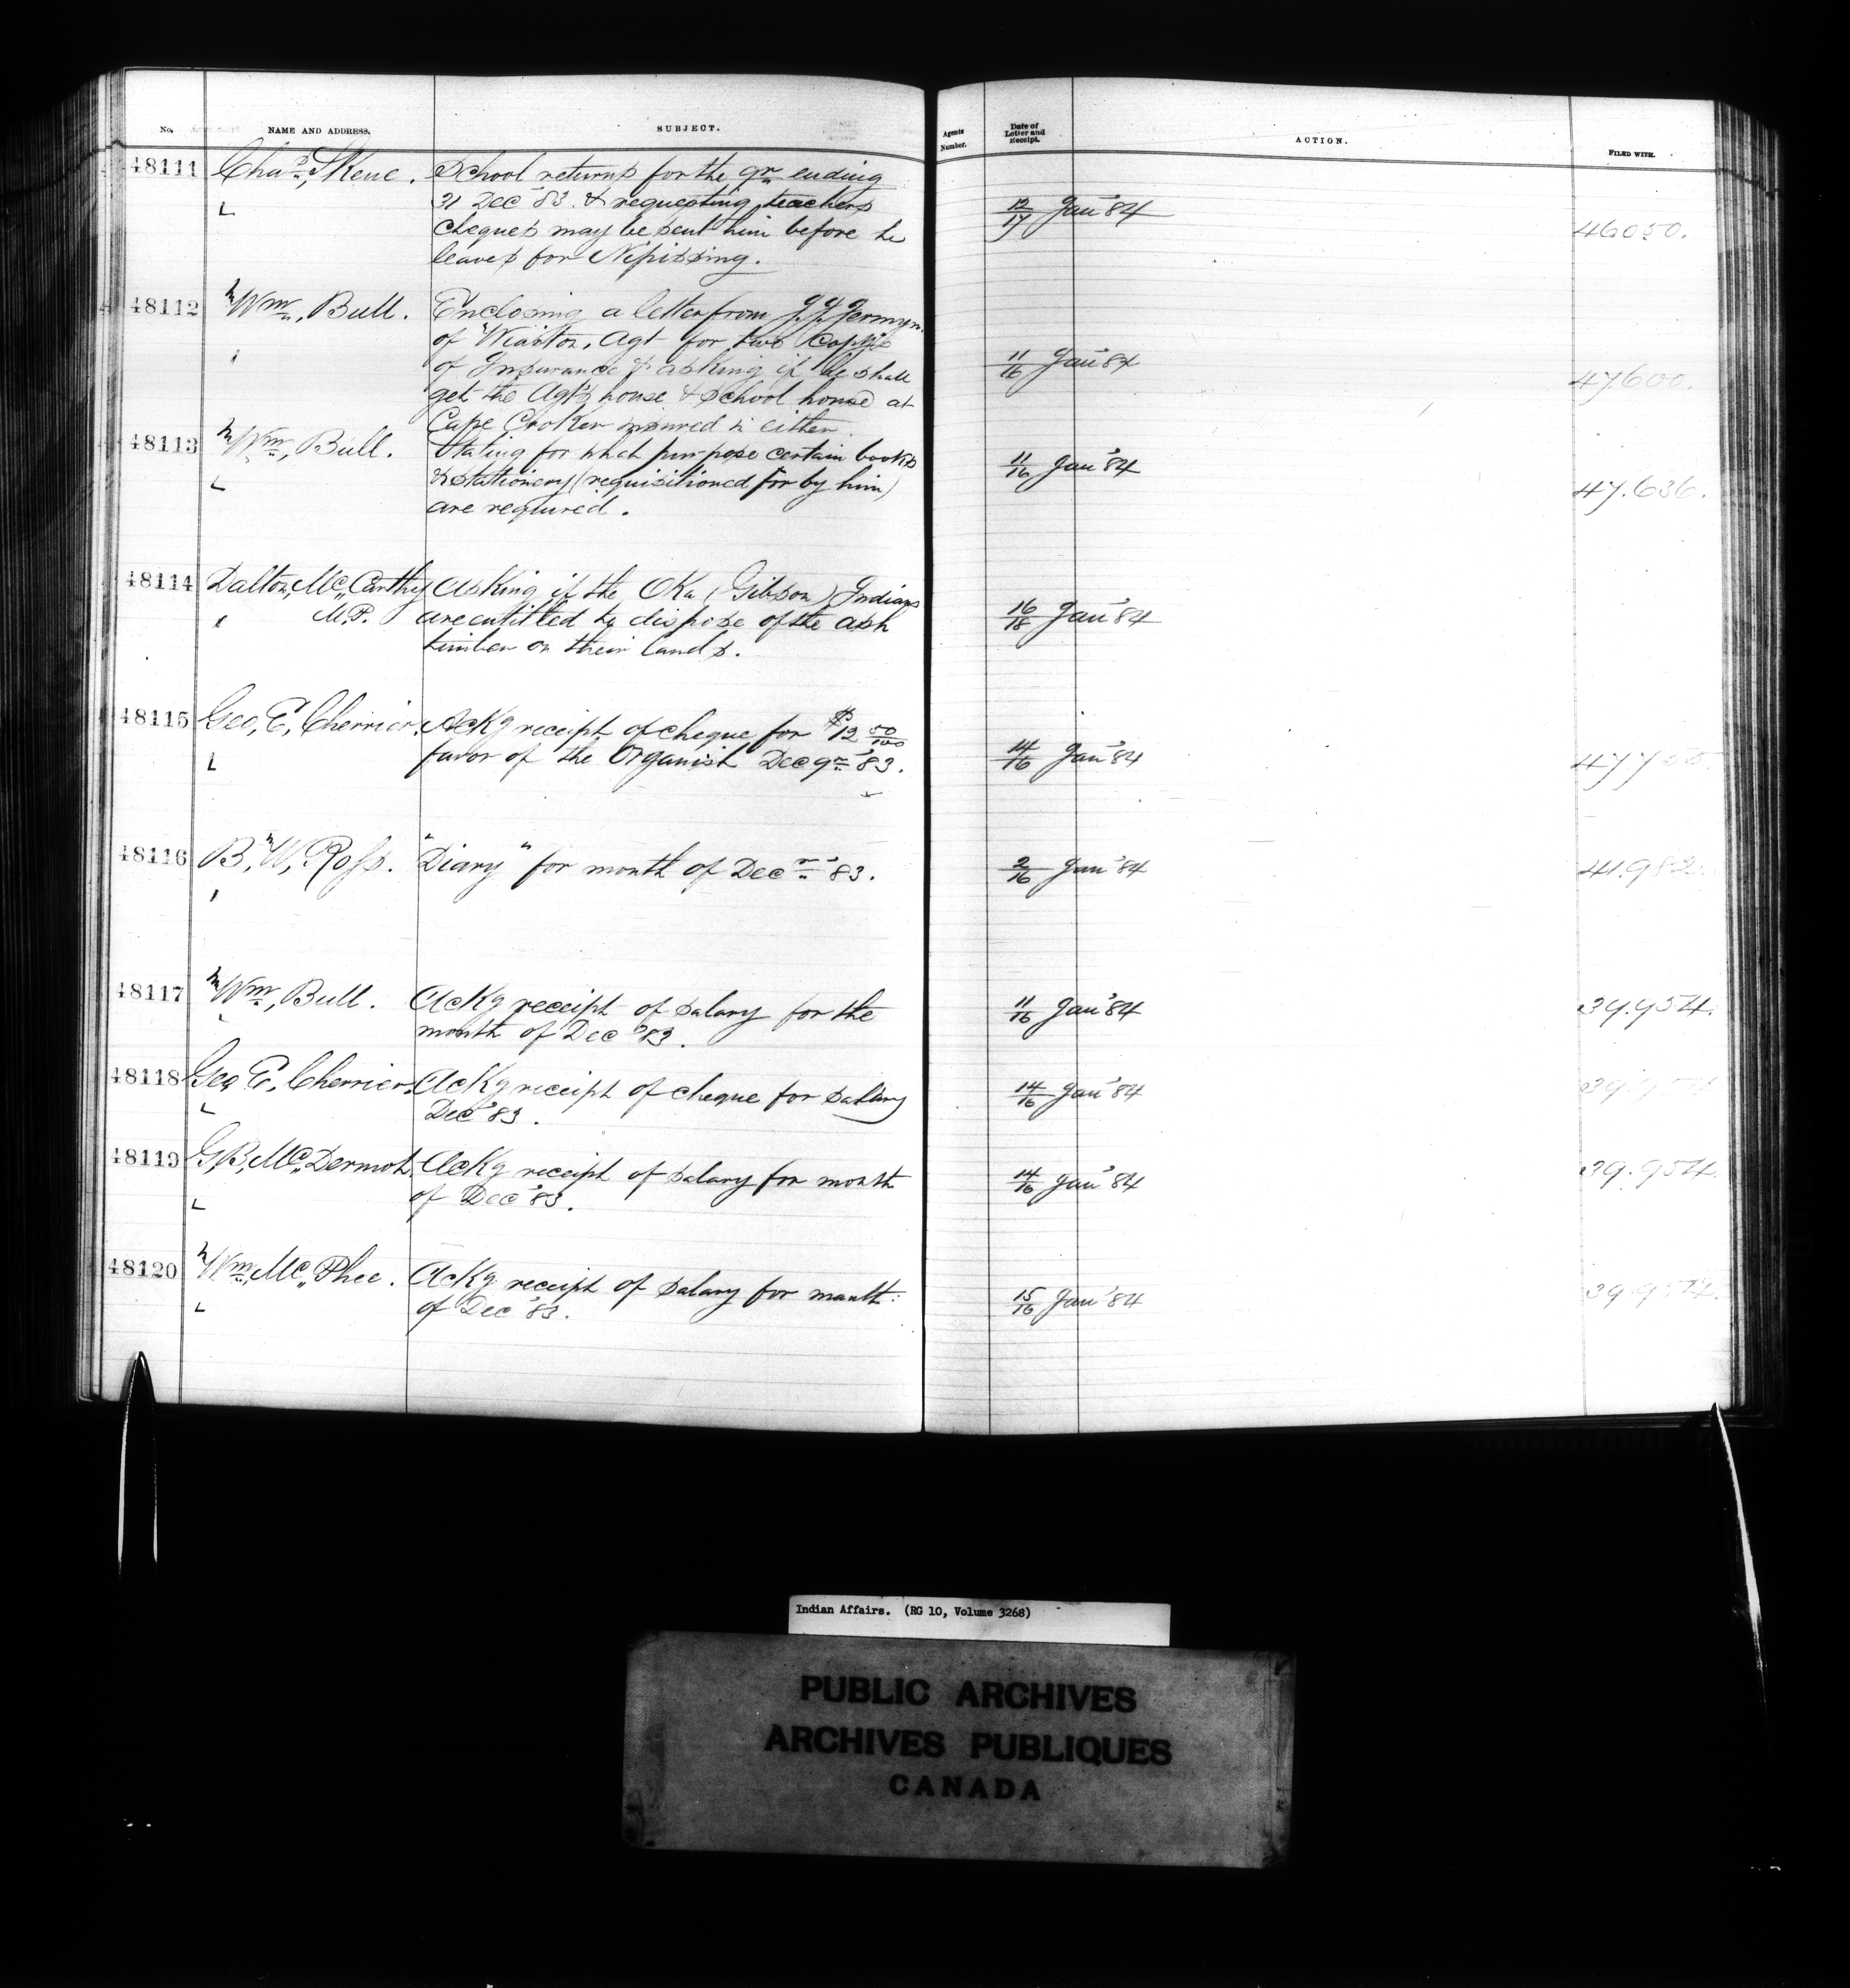 No. NAME AND ADDRESS. SUBJECT. Agents Number. Date of Letter and Receipt. ACTION. FILED WITH.
48111 Chas, Skene. School returns for the qr ending
31 Dec '83 & requesting teachers 12/17 Jan'84
cheques may be sent him before he 46050.
leaves for Nipissing.
48112 Wm, Bull. Enclosing a letter from J.J. Jermyn
of Wiarton, Agt for two Copy's
of Insurance & asking if he shall 11/16 Jan'84 47600.
get the Agt's house & School house at
Cape Croker insured in either.
48113 Wm, Bull. Stating for what purpose certain books 11/16 Jan'84
& stationery (requisitioned for by him) 47.636.
are required.
48114 Dalton, Mc,Carthy Asking if the Oka (Gibson) Indians
M.P. are entitled to dispose of the ash 16/18 Jan'84
timber on their lands.
48115 Geo, E, Cherrier. Ackg receipt of cheque for $12 50/100
favor of the Organist Dec qr '83. 14/16 Jan'84
48116 B, W, Ross. "Diary" for month of Decr '83. 2/16 Jan'84 41.982.
48117 Wm, Bull. Ackg receipt of salary for the 11/16 Jan'84 39.954.
month of Dec '83.
48118 Geo E, Cherrier. Ackg receipt of cheque for salary 14/16 Jan'84
Dec '83.
48119 G,B, Mc,Dermot. Ackg receipt of salary for month 14/16 Jan'84 39.954.
of Dec '83.
48120 Wm, Mc,Phee. Ackg receipt of salary for month 15/16 Jan'84 39.954.
of Dec '83.
Indian Affairs. (RG 10, Volume 3268)
PUBLIC ARCHIVES
ARCHIVES PUBLIQUES
CANADA